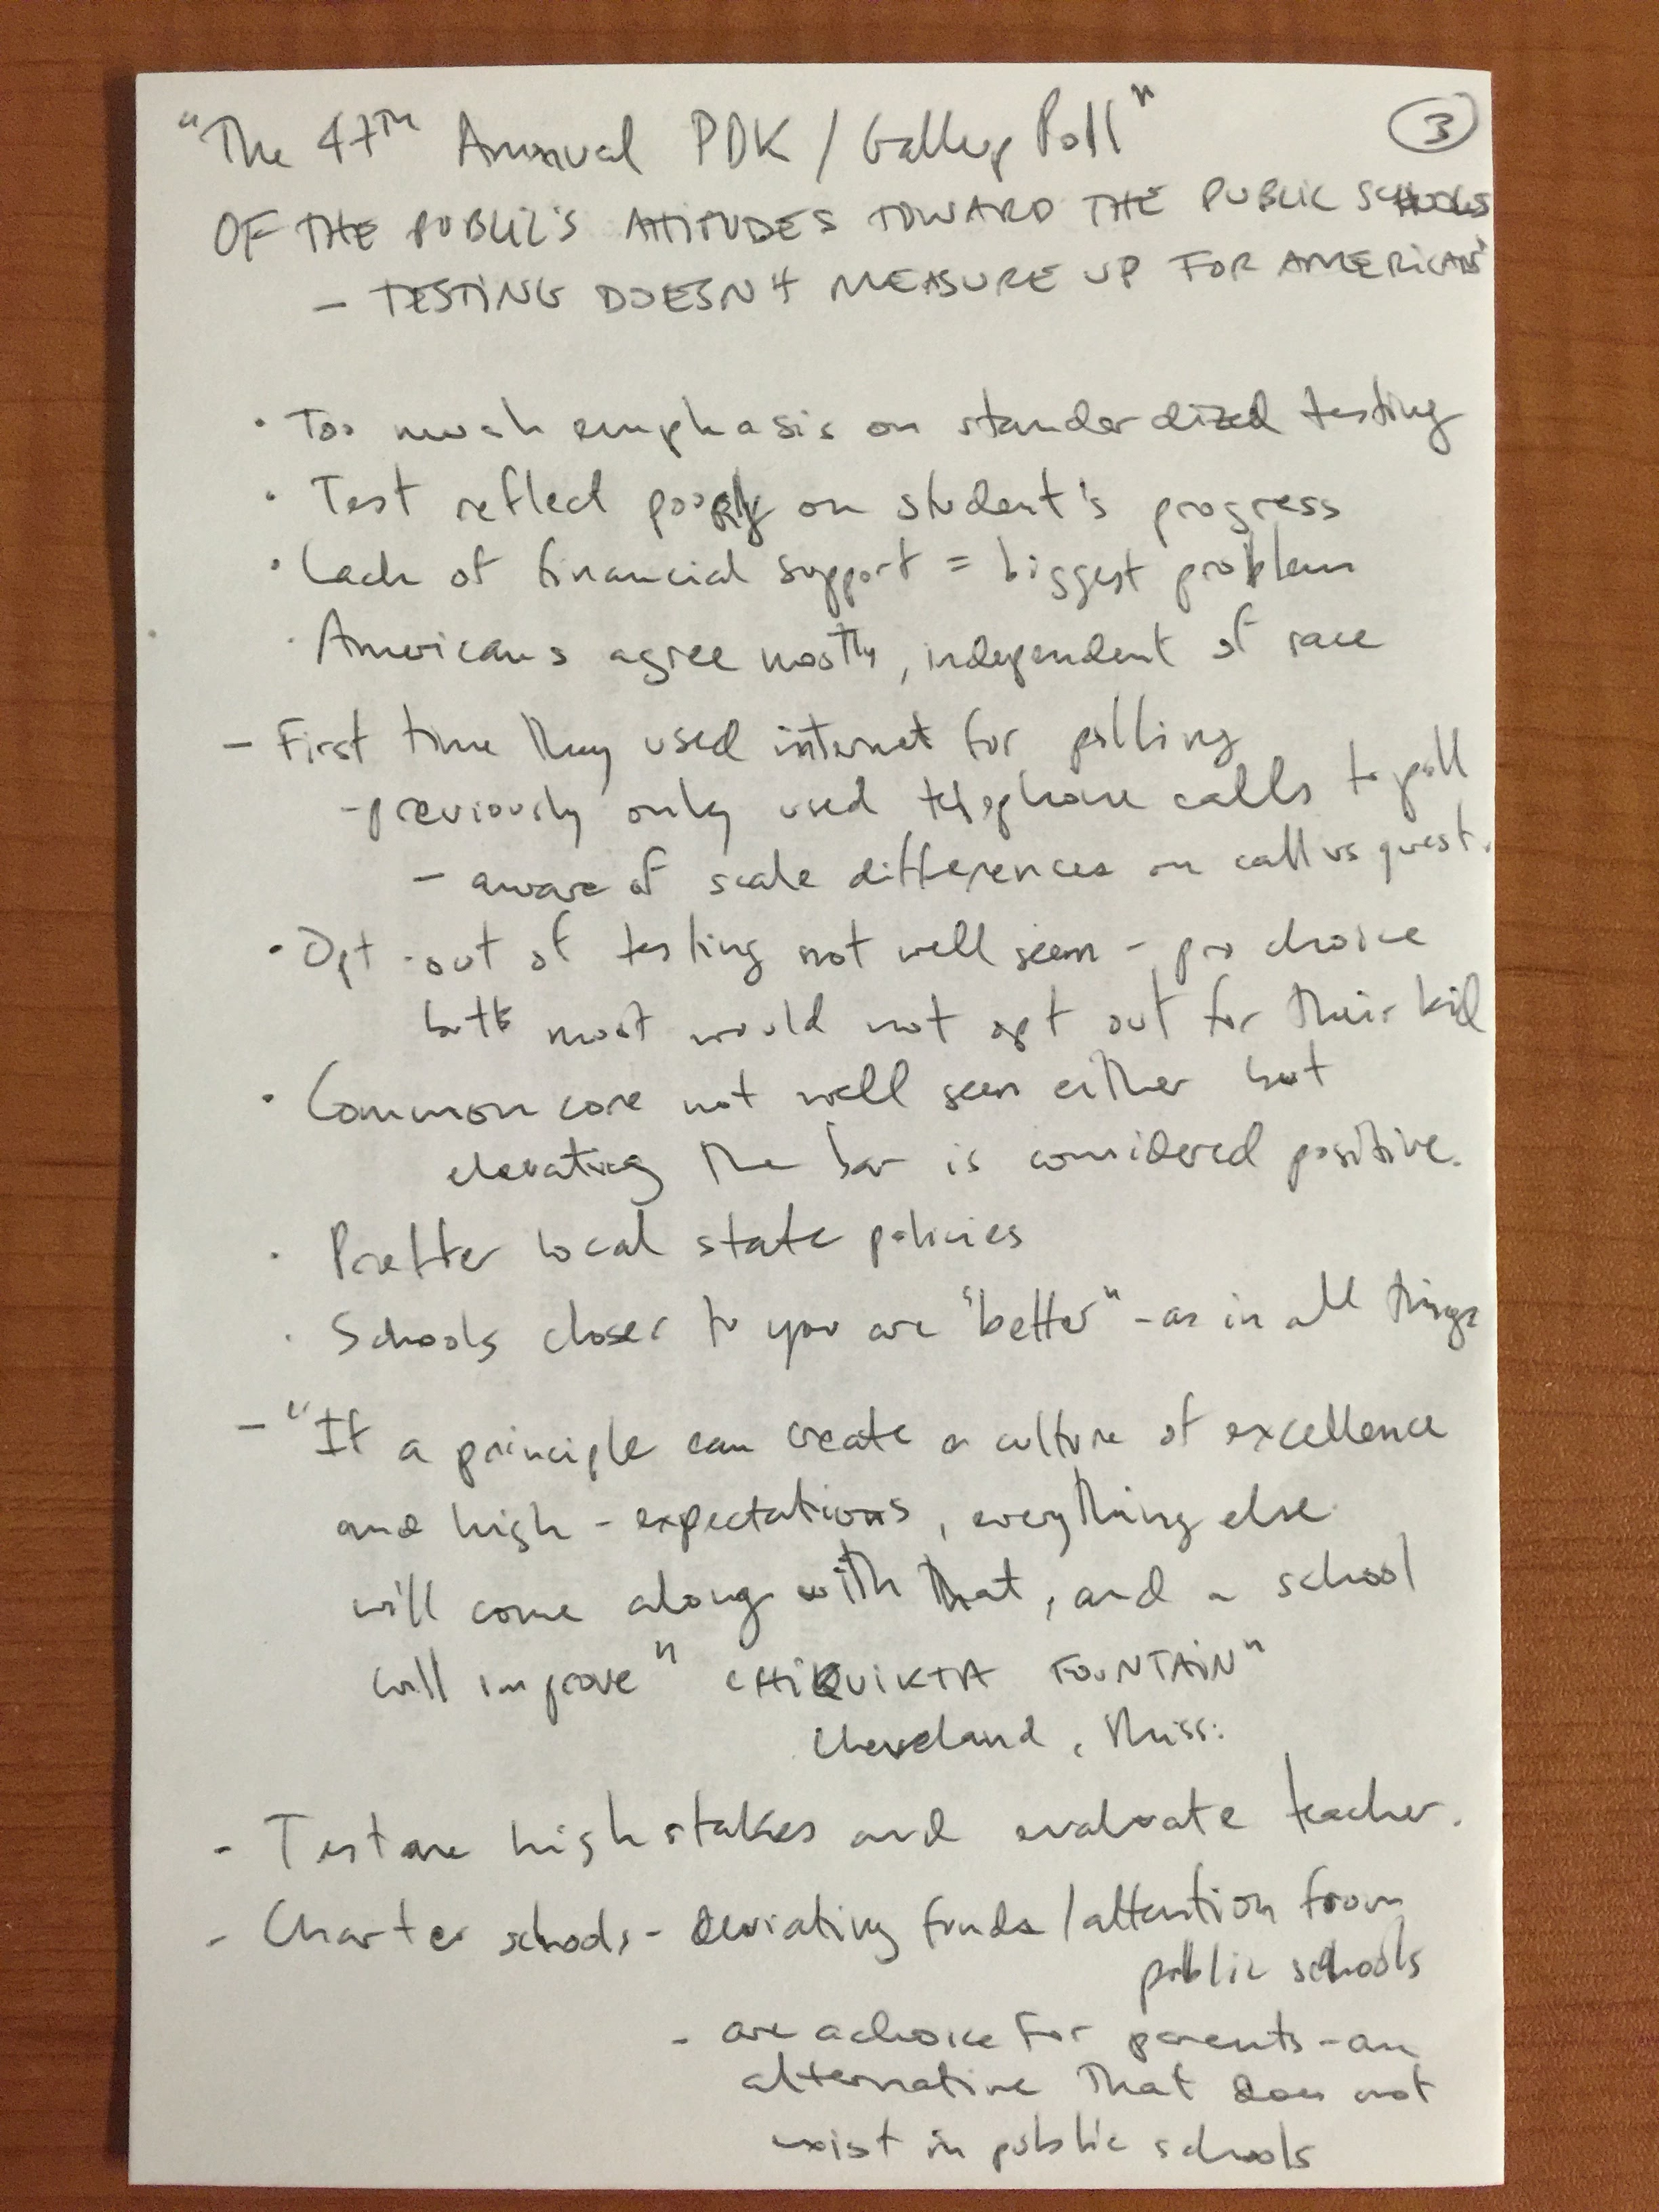 "The 47TH Annual PDK / Gallup Poll" 3
OF THE PUBLIC'S ATTITUDES TOWARD THE PUBLIC SCHOOLS
- TESTING DOESN'T MEASURE UP FOR AMERICANS
• Too much emphasis on standardized testing
• Test reflect poorly on student's progress
• Lack of financial support = biggest problem
• Americans agree mostly, independent of race
- First time they used internet for polling
- previously only used telephone calls to poll
- aware of scale differences on call vs quest.
• Opt-out of testing not well seen - pro choice
but most would not opt out for their kid
• Common core not well seen either but
elevating the bar is considered positive.
• Preffer local state policies
• Schools closer to you are "better" - as in all things
- "If a principle can create a culture of excellence
and high-expectations, everything else
will come along with that, and a school
will improve" CHIQUIKTA FOUNTAIN"
Cleveland, Miss.
- Test are high stakes and evaluate teacher.
- Charter schools - deviating funds/attention from
public schools
- are a choice for parents - an
alternative that does not
exist in public schools